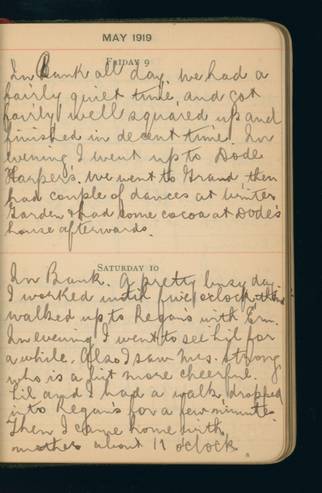 MAY 1919
FRIDAY 9
In Bank all day. We had a
fairly quiet time, and got
fairly well squared up and
finished in decent time. In
evening I went up to Dode
Harper's. We went to Grand then
had couple of dances at Winter
Garden & had some cocoa at Dode's
house afterwards.
SATURDAY 10
In Bank. A pretty busy day.
I worked until five o'clock, then
walked up to Regan's with Ern.
In evening I went to see Lil for
a while. Also I saw Mrs. Strong
who is a bit more cheerful.
Lil and I had a walk, dropped
into Regan's for a few minutes.
Then I came home with
mother about 11 o'clock